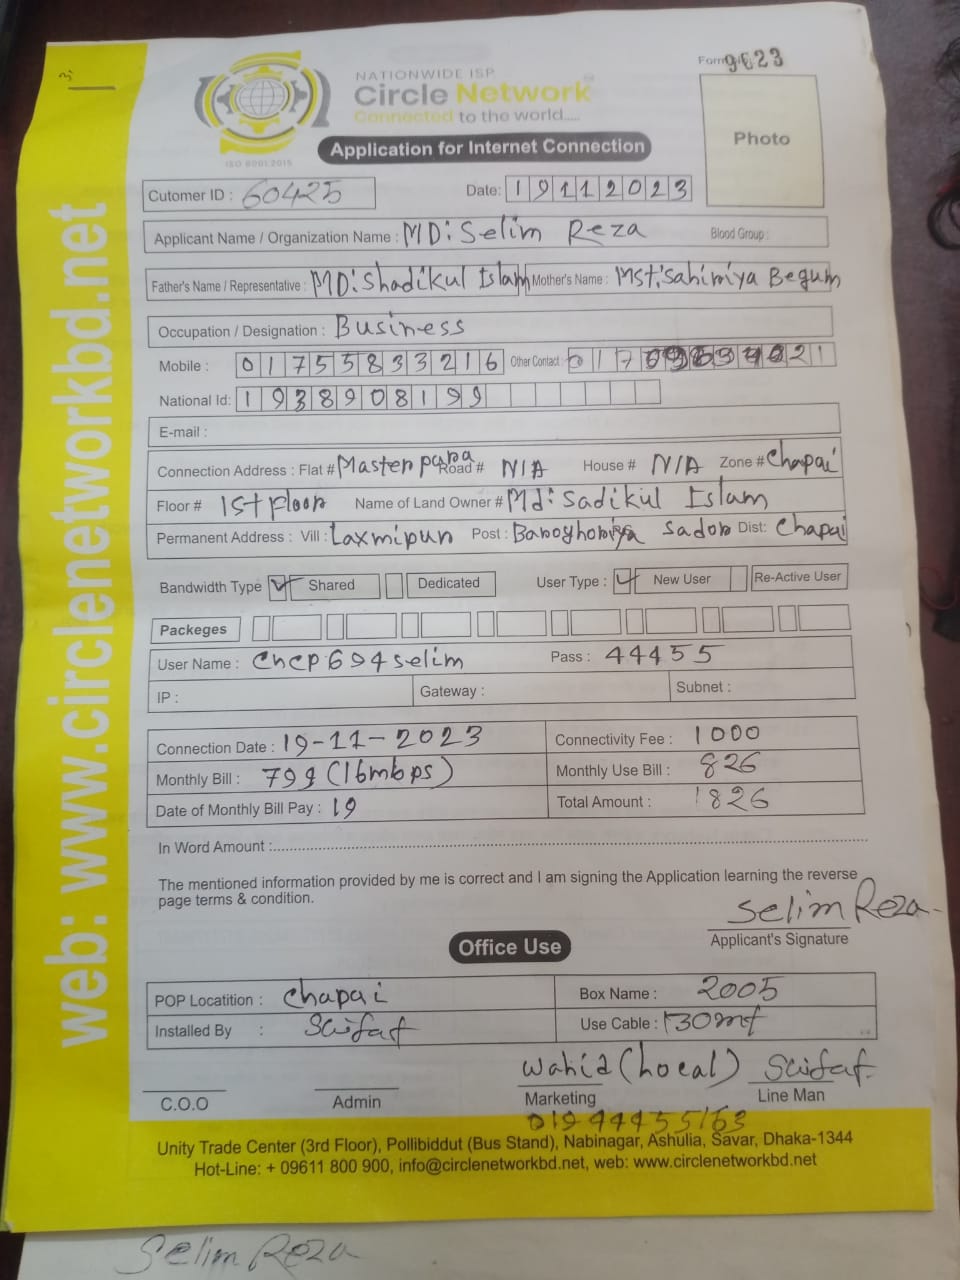 Form 9623
NATIONWIDE ISP
Circle Network
Connected to the world.....
ISO 9001:2015
Application for Internet Connection
Photo
Cutomer ID : 60425 Date: 19112023
Applicant Name / Organization Name : MD: Selim Reza Blood Group :
Father's Name / Representative : MD: Shadikul Islam Mother's Name : Mst: Sahimiya Begum
Occupation / Designation : Business
Mobile : 01755833216 Other Contact : 017
National Id: 1938908199
E-mail :
Connection Address : Flat # Master para Road # N/A House # N/A Zone # Chapai
Floor # 1st floor Name of Land Owner # Md: Sadikul Islam
Permanent Address : Vill : Laxmipur Post : Baroghoriya Sador Dist: Chapai
Bandwidth Type Shared Dedicated User Type : New User Re-Active User
Packeges
User Name : Chcp694selim Pass : 44455
IP : Gateway : Subnet :
Connection Date : 19-11-2023 Connectivity Fee : 1000
Monthly Bill : 799 (16mbps) Monthly Use Bill : 826
Date of Monthly Bill Pay : 19 Total Amount : 1826
In Word Amount :
The mentioned information provided by me is correct and I am signing the Application learning the reverse
page terms & condition.
Selim Reza
Applicant's Signature
Office Use
POP Locatition : Chapai Box Name : 2005
Installed By : Saifaf Use Cable : 130mt
Wahid (Local) Saifaf
C.O.O Admin Marketing Line Man
01944455163
Unity Trade Center (3rd Floor), Pollibiddut (Bus Stand), Nabinagar, Ashulia, Savar, Dhaka-1344
Hot-Line: + 09611 800 900, info@circlenetworkbd.net, web: www.circlenetworkbd.net
web: www.circlenetworkbd.net
Selim Reza